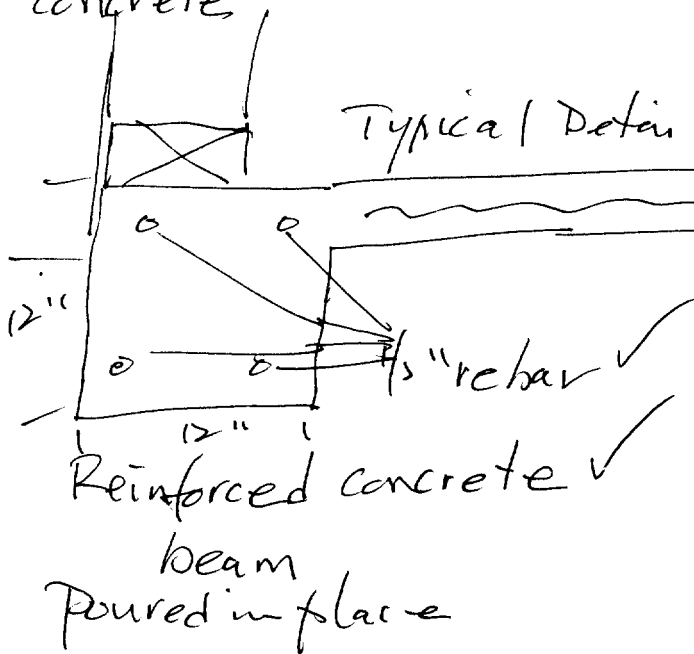 concrete
Typical Detai
12"
"rebar ✓
12"
Reinforced concrete ✓
beam
Poured in place